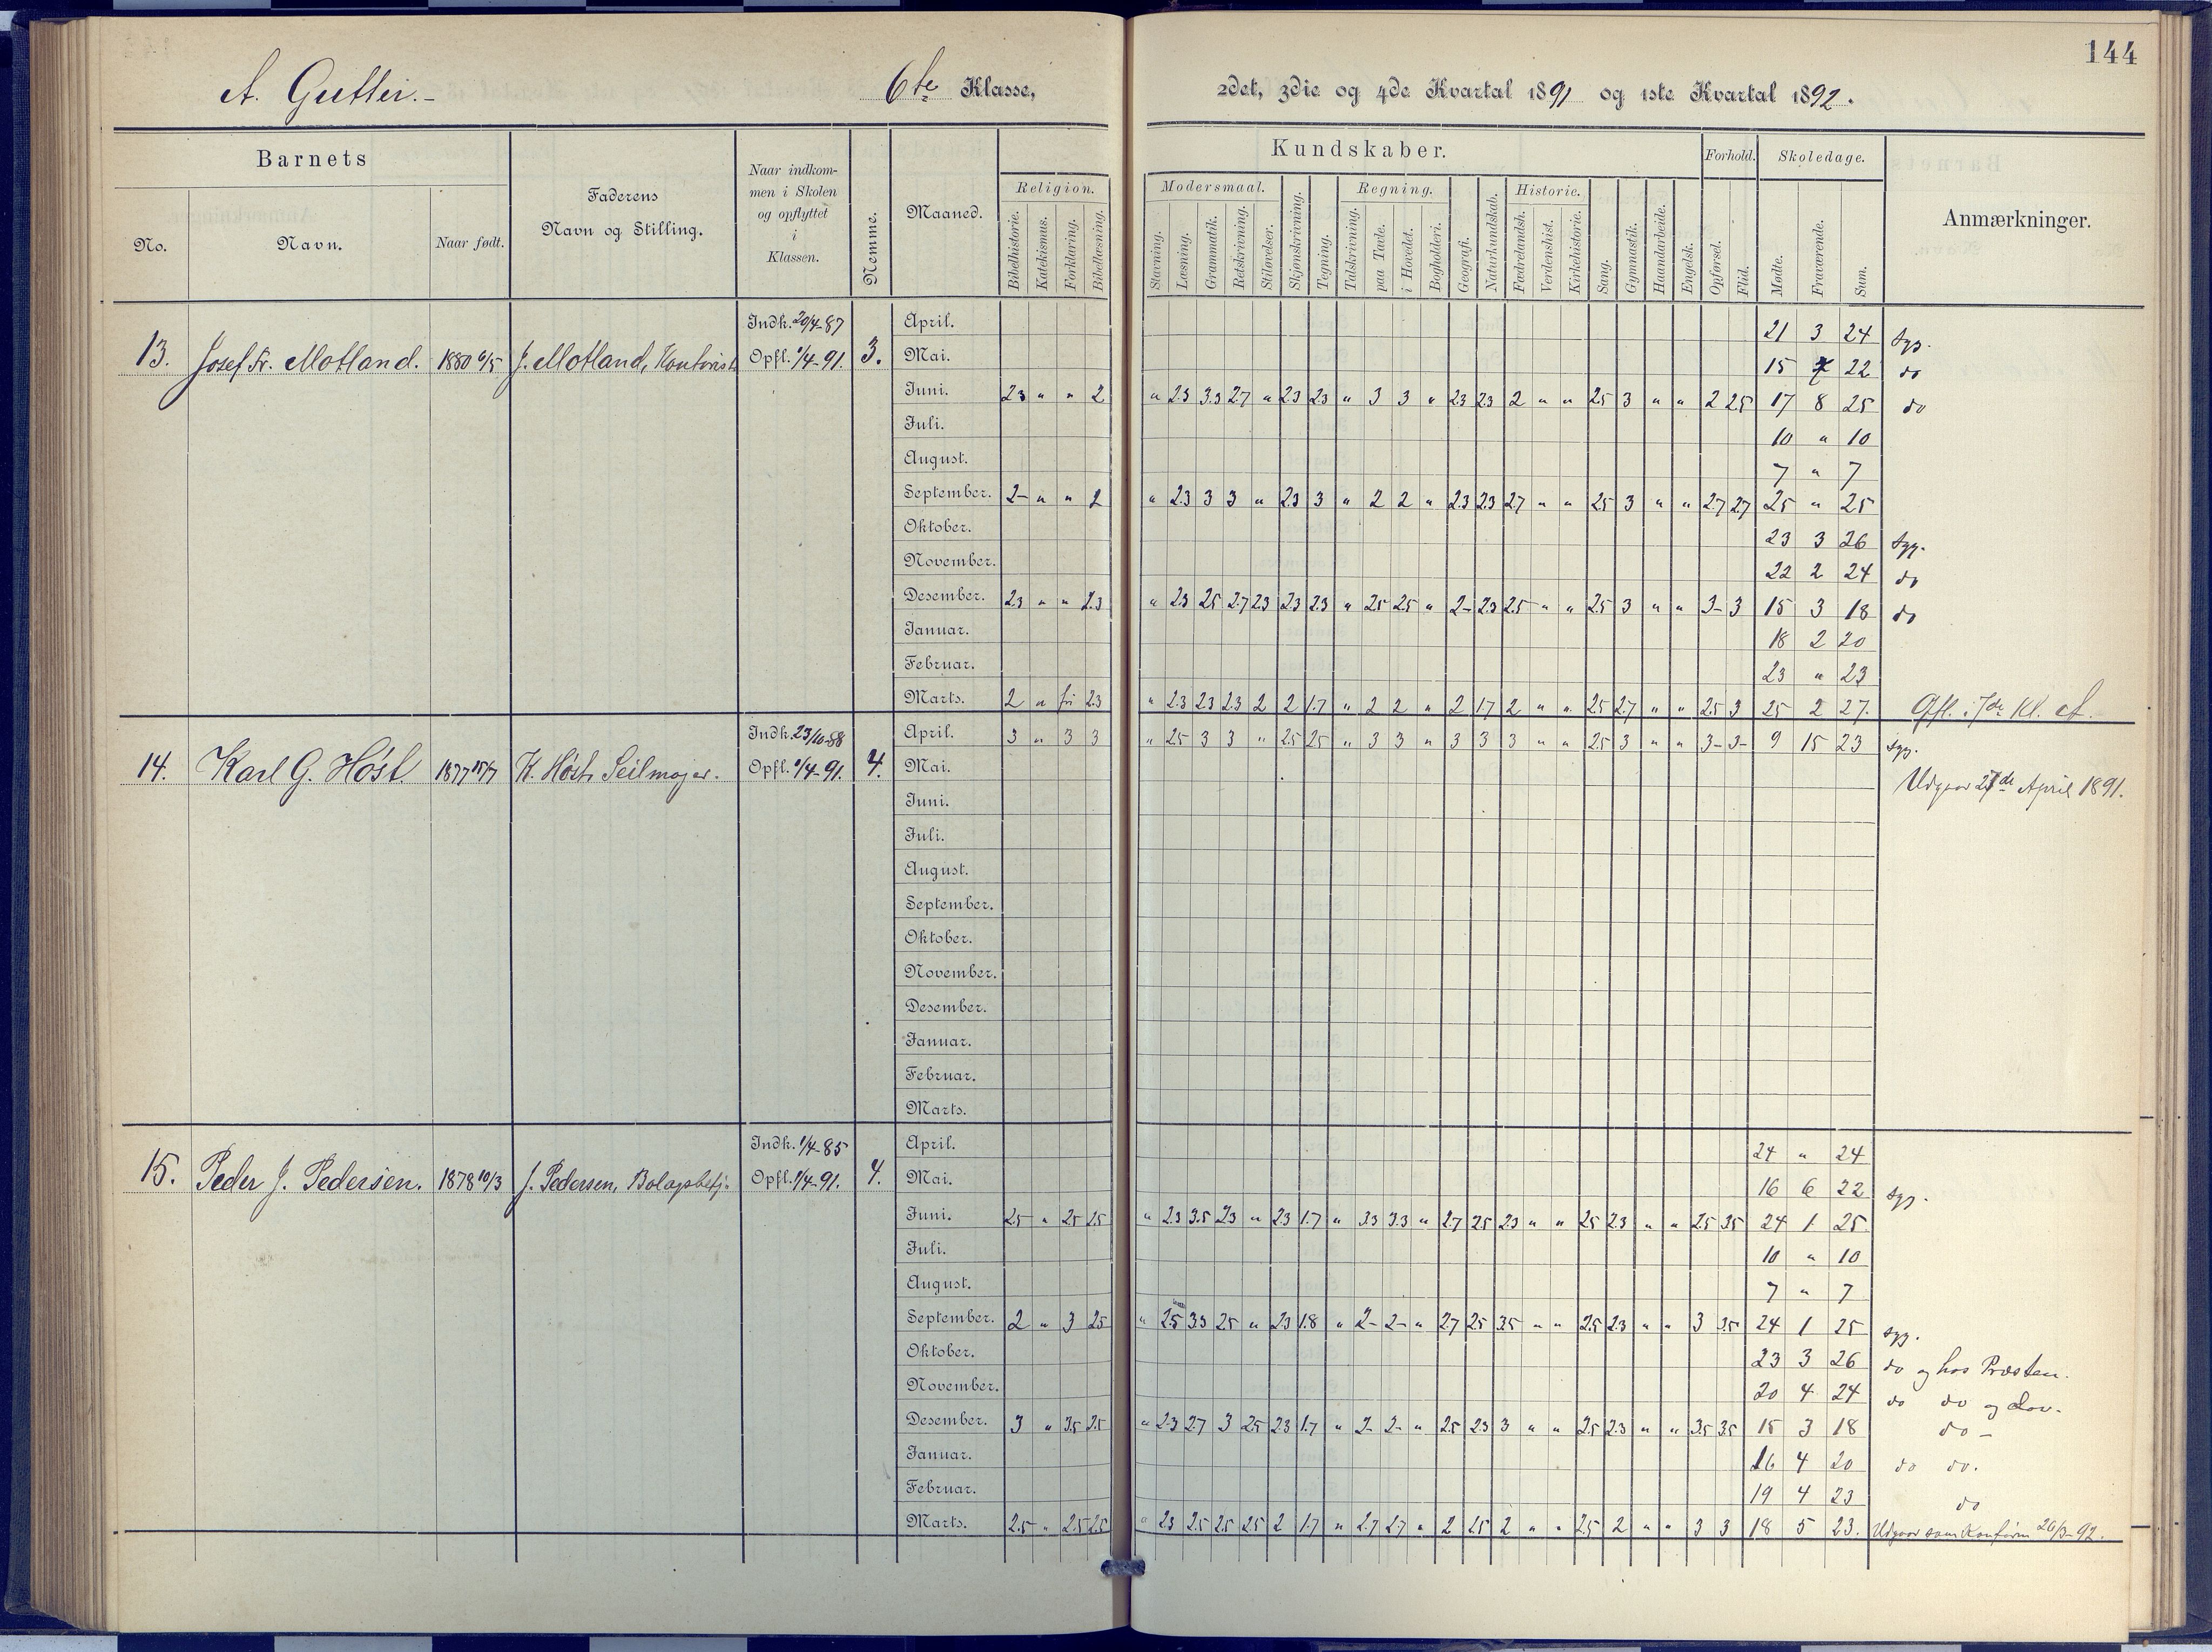 144
A. Gutter.-
6te Klasse,
2det, 3die og 4de Kvartal 1891 og 1ste Kvartal 1892.
Barnets
Faderens Navn og Stilling.
Naar indkom-
men i Skolen
og opflyttet
i
Klassen.
Nemme.
Maaned.
Kundskaber.
Forhold.
Skoledage.
Anmærkninger.
No.
Navn.
Naar født.
Religion.
Modersmaal.
Regning.
Historie.
Bibelhistorie.
Katekismus.
Forklaring.
Bibellæsning.
Stavning.
Læsning.
Grammatik.
Retskrivning.
Stiløvelser.
Skjønskrivning.
Tegning.
Talskrivning.
paa Tavle.
i Hovedet.
Bogholderi.
Geografi.
Naturkundskab.
Fædrelandsh.
Verdenshist.
Kirkehistorie.
Sang.
Gymnastik.
Haandarbeide.
Engelsk.
Opførsel.
Flid.
Mødte.
Fraværende.
Sum.
13. Josef Fr. Motland. 1880 6/5 J. Motland, Kontorist Indk. 20/4-87 Opfl. 1/4-91. 3.
April. 21 3 24 Syg.
Mai. 15 7 22 do
Juni. 2.3 " " 2 " 2.3 3.3 2.7 " 2.3 2.3 " 3 3 " 2.3 2.3 2 " " 2.5 3 " " 2 2.5 17 8 25 do
Juli. 10 " 10
August. 7 " 7
September. 2- " " 2 " 2.3 3 3 " 2.3 3 " 2 2 " 2.3 2.3 2.7 " " 2.5 3 " " 2.7 2.7 25 " 25
Oktober. 23 3 26 Syg.
November. 22 2 24 do
Desember. 2.3 " " 2.3 " 2.3 2.5 2.7 2.3 2.3 2.3 " 2.5 2.5 " 2- 2.3 2.5 " " 2.5 3 " " 3- 3 15 3 18 do
Januar. 18 2 20
Februar. 23 " 23
Marts. 2 " fri 2.3 " 2.3 2.3 2.3 2 2 1.7 " 2 2 " 2 1.7 2 " " 2.5 2.7 " " 2.5 3 25 2 27. Opfl. i 7de Kl. A.
14. Karl G. Høst. 1877 15/7 K. Høst, Seilmager. Indk. 23/10-88 Opfl. 1/4-91. 4.
April. 3 " 3 3 " 2.5 3 3 " 2.5 2.5 " 3 3 " 3 3 3 " " 2.5 3 " " 3- 3- 9 15 23 Syg.
Mai. Udgaar de April 1891.
Juni.
Juli.
August.
September.
Oktober.
November.
Desember.
Januar.
Februar.
Marts.
15. Peder J. Pedersen. 1878 10/3 J. Pedersen, Indk. 1/4-85 Opfl. 1/4-91. 4.
April. 24 " 24
Mai. 16 6 22 Syg.
Juni. 2.5 " 2.5 2.5 " 2.3 3.5 2.3 " 2.3 1.7 " 3.3 3.3 " 2.7 2.5 2.3 " " 2.5 2.3 " " 2.5 3.5 24 1 25.
Juli. 10 " 10
August. 7 " 7
September. 2 " 3 2.5 " 2.5 3.3 2.5 " 2.3 1.8 " 2- 2- " 2.7 2.5 3.5 " " 2.5 2.3 " " 3 3.5 24 1 25 Syg.
Oktober. 23 3 26 do og hos Præsten.
November. 20 4 24 do do og Lov.
Desember. 3 " 3.5 2.5 " 2.3 2.7 3 2.5 2.3 1.7 " 2- 2- " 2.5 2.3 3 " " 2.5 2.3 " " 3.5 3.5 15 3 18 do -
Januar. 16 4 20 do do.
Februar. 19 4 23 do
Marts. 2.5 " 2.5 2.5 " 2.3 2.5 2.5 2.5 2 1.7 " 2.7 2.7 " 2 2.5 2 " " 2.5 2 " " 3 3 18 5 23. Udgaar som Konfirm 26/3-92.